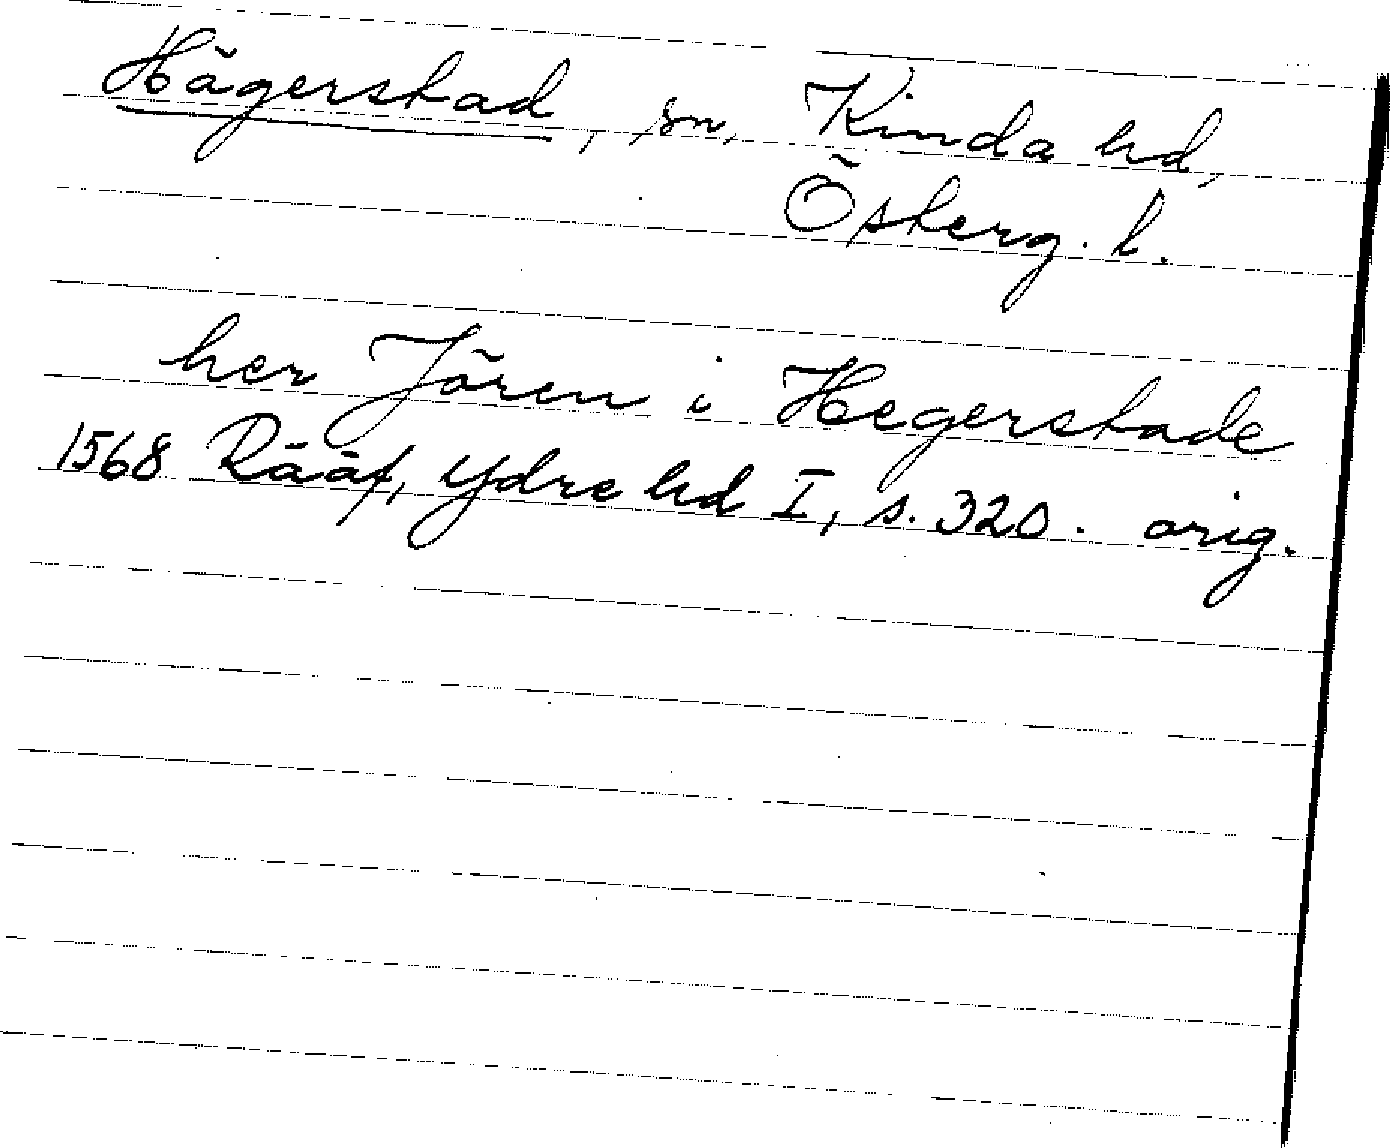 Hägerstad, sn, Kinda hd,
Österg. l.
her Jören i Hegerstade
1568 Rääf, Ydre hd I, s. 320. orig.